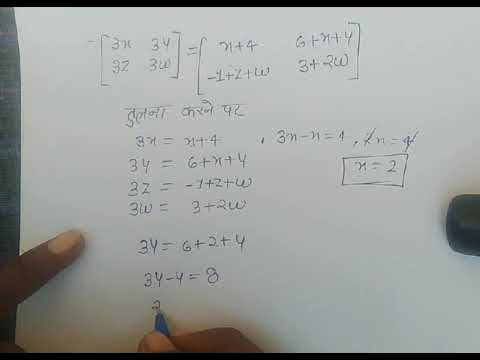 [3x 3y] = [x+4 6+x+y]
[3z 3w] [-1+z+w 3+2w]
तुलना करने पर
3x = x+4 , 3x-x=4 , 2x=4
3y = 6+x+y x=2
3z = -1+z+w
3w = 3+2w
3y = 6+2+y
3y-y=8
2